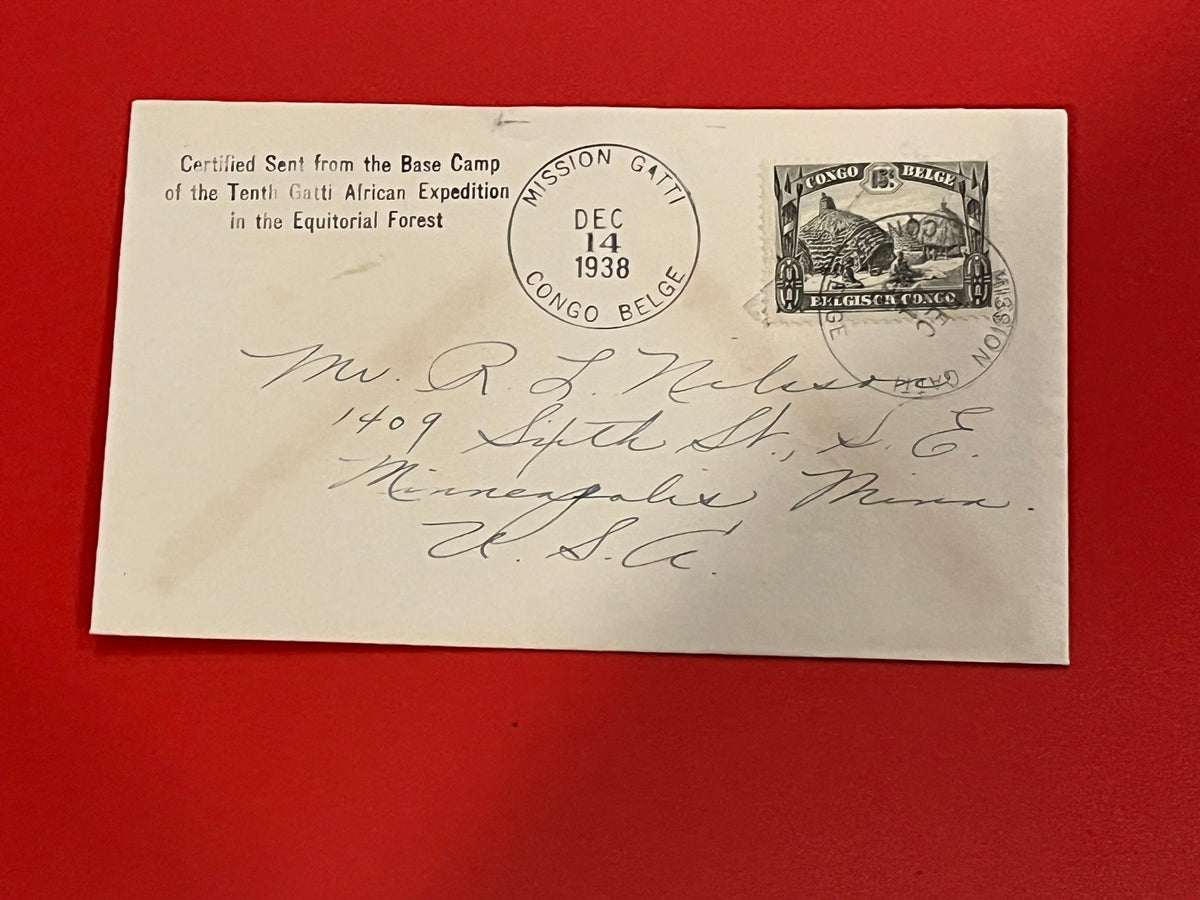 Certified Sent from the Base Camp
of the Tenth Gatti African Expedition
in the Equitorial Forest
MISSION GATTI
DEC
14
1938
CONGO BELGE
CONGO 15c BELGE
BELGISCH CONGO
MISSION GATTI
Mr. R. L. Nelson
1409 Sixth St., S. E.
Minneapolis Minn.
U. S. A.